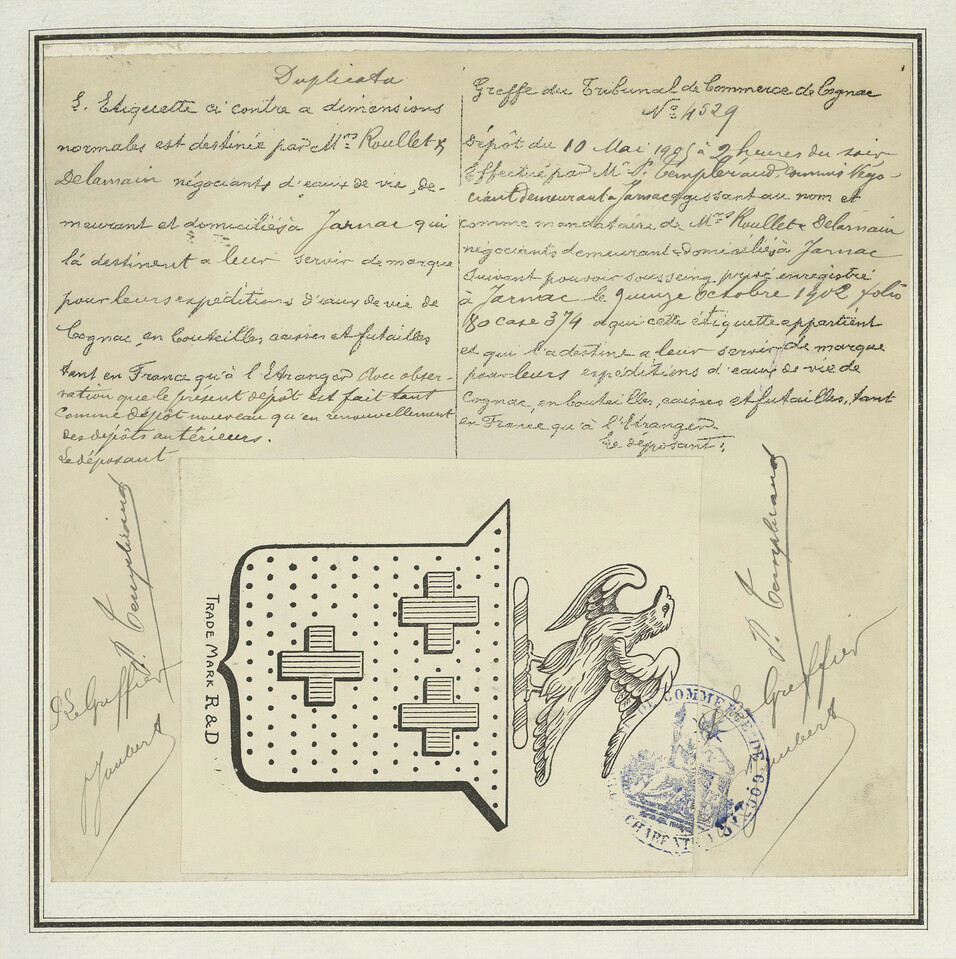 Duplicata
L. Etiquette ci contre a dimensions
normales est destinée par Mrs Roullet &
Delamain négociants d'eaux de vie, de-
meurant et domiciliés à Jarnac qui
la destinent a leur servir de marque
pour leurs expéditions d'eaux de vie de
Cognac, en bouteilles caisses et futailles
tant en France qu'à l'Etranger Avec obser-
vation que le présent dépôt est fait tant
comme dépôt nouveau qu'en renouvellement
des dépôts antérieurs.
Le déposant
Greffe du Tribunal de Commerce de Cognac
No 4529
Dépôt du 10 Mai à 2 heures du soir
Effectué par Mr P. Commis Négo-
ciant demeurant a Jarnac agissant au nom et
comme mandataire de Mrs Roullet & Delamain
négociants demeurant & domiciliés à Jarnac
suivant pouvoir sous seing privé enregistré
à Jarnac le quinze Octobre 1902 folio
80 case 374 a qui cette étiquette appartient
et qui l'a destine a leur servir de marque
pour leurs expéditions d'eaux de vie de
Cognac, en bouteilles, caisses et futailles, tant
en France qu'à l'Etranger
Le déposant:
P.
Le Greffier
Joubert
TRADE MARK R & D
P.
Le Greffier
Joubert
DE COMMERCE DE COGNAC
CHARENTE